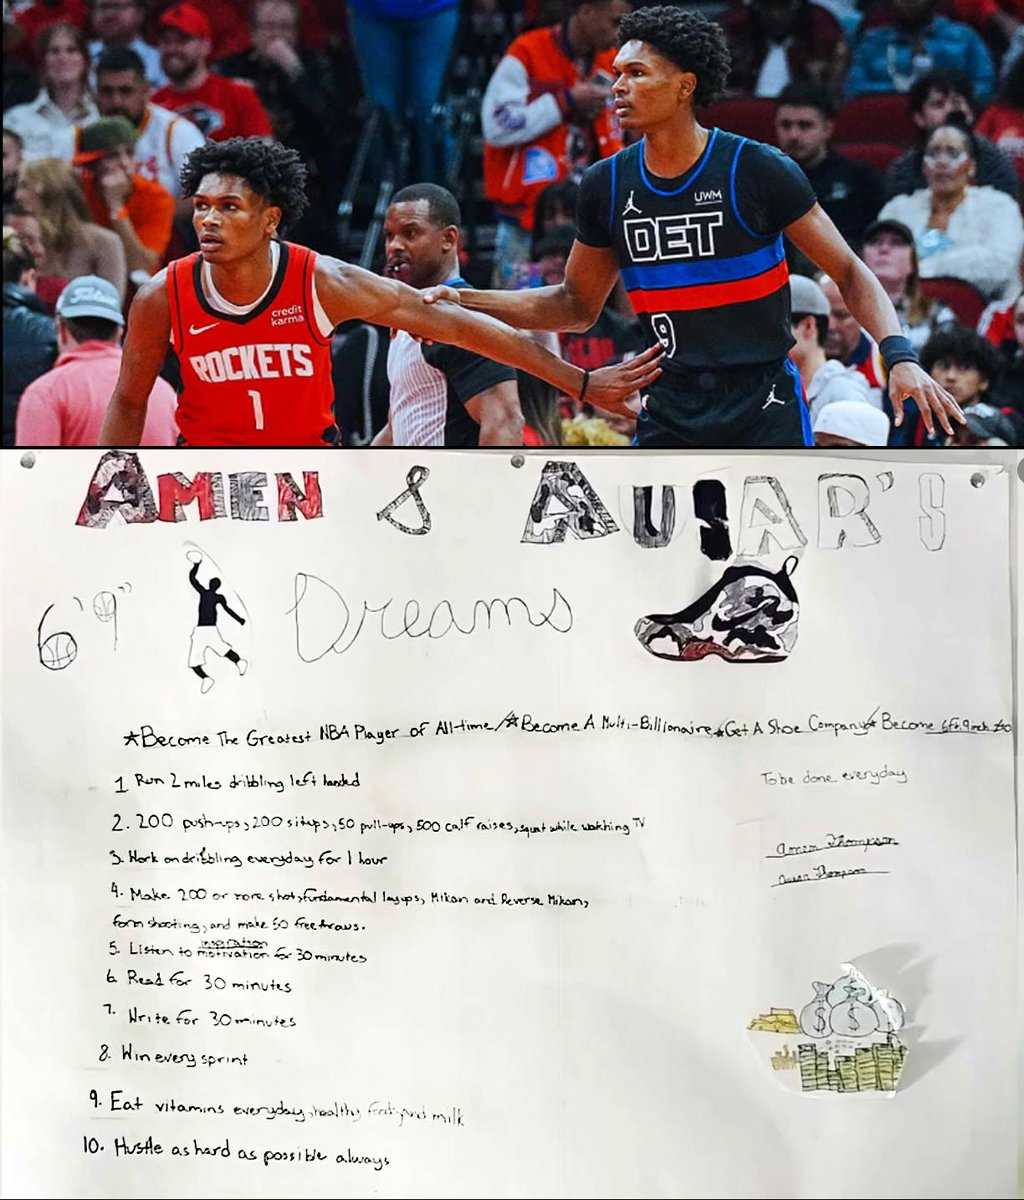 credit karma
ROCKETS
1
UWM
DET
9
AMEN & AUSAR'S
6'9" Dreams
★Become The Greatest NBA Player of All-time/★Become A Multi-Billionaire★Get A Shoe Company★Become 6ft.9inch
1 Run 2 miles dribbling left handed
To be done everyday
2. 200 push-ups, 200 situps, 50 pull-ups, 500 calf raises, squat while watching TV
3. Work on dribbling everyday for 1 hour
Amen Thompson
Ausar Thompson
4. Make 200 or more shots, fundamental layups, Mikan and Reverse Mikan,
form shooting, and make 50 freethrows.
inspiration
5. Listen to motivation for 30 minutes
6. Read for 30 minutes
7. Write for 30 minutes
8. Win every sprint
9. Eat vitamins everyday, healthy food, and milk
10. Hustle as hard as possible always
$ $ $